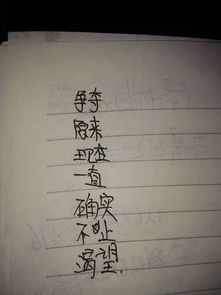 争夺
原来
现在
一直
确实
不止
渴望.